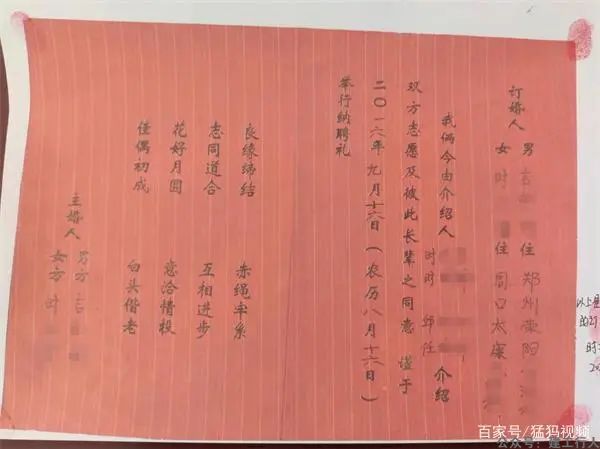 订婚人 男 吉 住 郑州荥阳
女 时 住 周口太康
我俩今由介绍人 时 时 邱 任 介绍
双方志愿及彼此长辈之同意 谨于
二〇一六年九月十六日（农历八月十六日）
举行纳聘礼
良缘缔结 赤绳牢系
志同道合 互相进步
花好月圆 意洽情投
佳偶初成 白头偕老
主婚人 男方 吉
女方 时
以上是
的订
时
20
百家号/猛犸视频
公众号：上行人